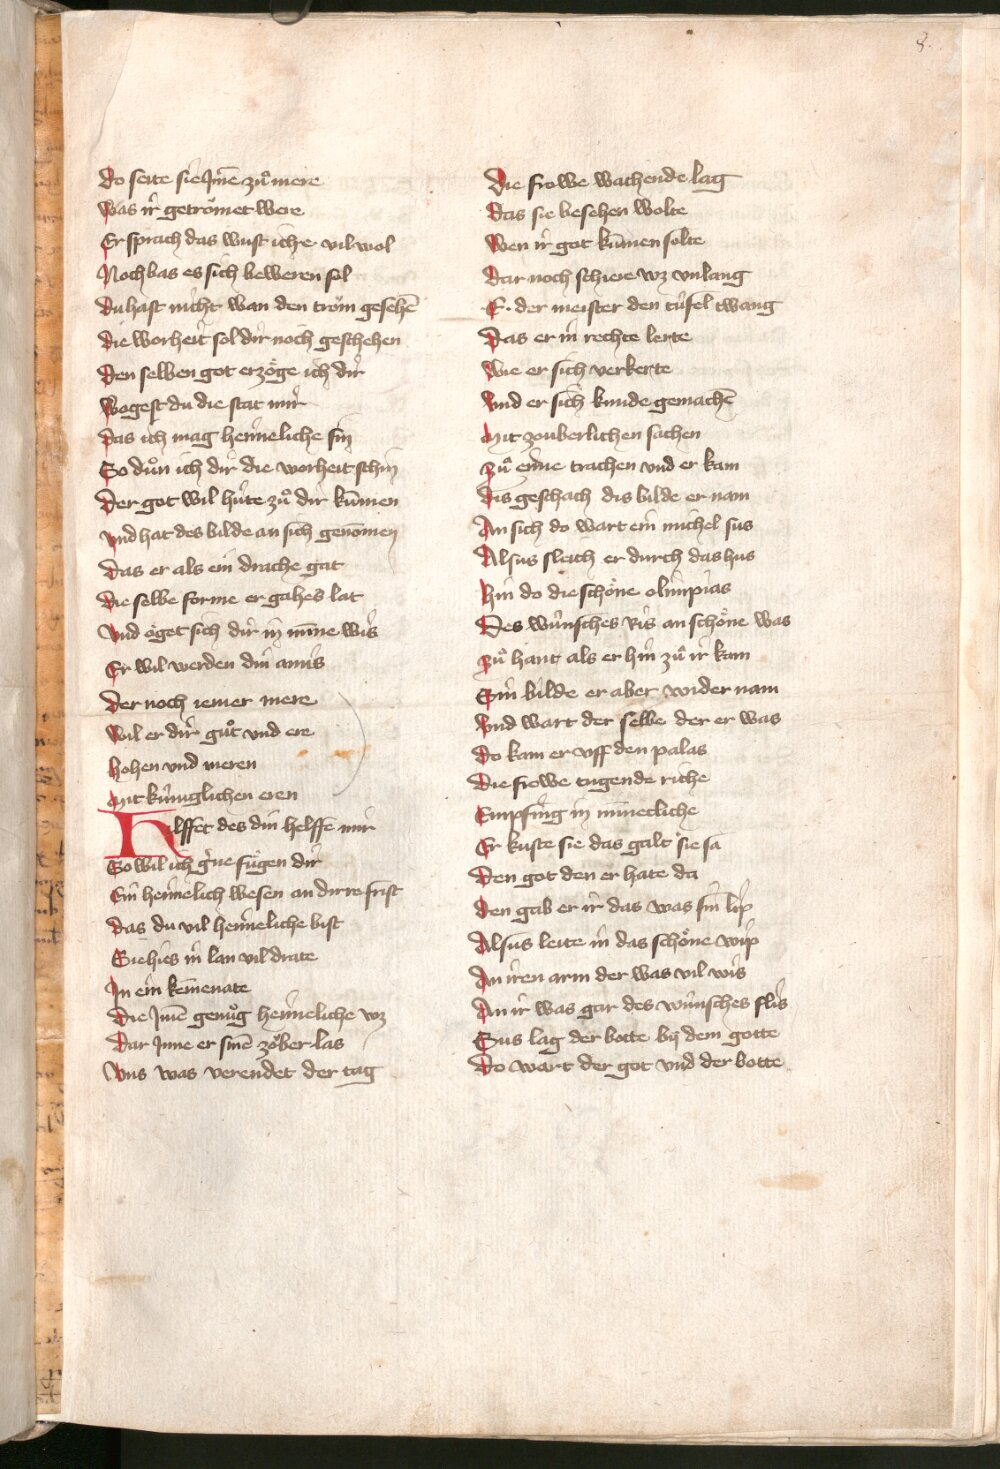 8.
Do seite sie Jm̄e zuͦ mere
Was ir getroͤmet were
Er sprach das wust iche vil wol
Noch bas es sich beweren sol
Du hast nicht wan den trom gesehē
Die worheit sol dir noch geschehen
Den selben got erzoͤge ich dir
Wogest du die stat mir
Das ich mag heimeliche sin
So duͦn ich dir die worheit schin
Der got wil huͤte zuͦ dir kūmen
Vnd hat des bilde an sich genōmen
Das er als ein drache gat
Die selbe forme er gahes lat
Vnd oͤget sich dir in mīne wis
Er wil werden din amis
Der noch iemer mere
Wil er dir guͦt vnd ere
Hohen vnd meren
Mit kuͤniglichen eren
Hilffet des din helffe mir
So wil ich g̾ne fuͤgen dir
Ein heimelich wesen an dirre frist
Das du vil heimeliche bist
Sie hies in lan vil drate
In ein kemenate
Die Jmē genuͦg heimeliche wz
Dar Jnne er sinē zoͮber las
Vns was verendet der tag
Die frowe wachende lag
Das sie besehen wolte
Wen ir got kūmen solte
Dar noch schiere wz vnlang
E. der meister den tuͤfel twang
Das er in rechte lerte
Wie er sich verkerte
Vnd er sich kunde gemachē
Mit zouberlichen sachen
Zuͦ eime trachen vnd er kam
Dis geschach dis bilde er nam
An sich do wart ein michel sus
Alsus sleich er durch das hus
Hin do die schoͤne olimpias
Des wuͤnsches Ris an schoͤne was
Zuͦ hant als er hin zuͦ ir kam
Sin bilde er aber wider nam
Vnd wart der selbe der er was
Do kam er vff den palas
Die frowe tugende riche
Empfing in minnecliche
Er kuste sie das galt sie sa
Den got den er hate da
Den gab er ir das was sin lip
Alsus leite in das schoͤne wip
An iren arm der was vil wis
An ir was gar des wuͤnsches flis
Sus lag der botte bij dem gotte
Do wart der got vnd der botte